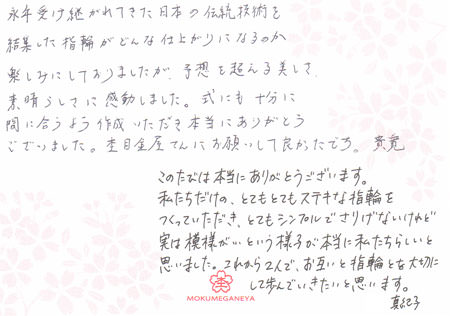 永年受け継がれてきた日本の伝統技術を
結集した指輪がどんな仕上がりになるのか
楽しみにしておりましたが、予想を超える美しさ、
素晴らしさに感動しました。式にも十分に
間に合うよう作成いただき本当にありがとう
ございました。杢目金屋さんにお願いして良かったです。貴寛
このたびは本当にありがとうございます。
私たちだけの、とてもとてもステキな指輪を
つくっていただき、とてもシンプルでさりげないけれど
実は模様がいいという様子が本当に私たちらしいと
思いました。これから2人で、お互いと指輪とを大切に
して歩んでいきたいと思います。
真紀子
MOKUMEGANEYA